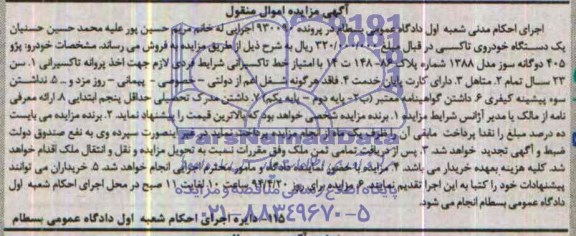 آگهی مزایده اموال منقول
اجرای احکام مدنی شعبه اول دادگاه عمومی بسطام در پرونده ۹۳۰۰ اجرایی له خانم مریم حسین پور علیه محمد حسین حسنیان
یک دستگاه خودروی تاکسی در قبال مبلغ ۳۲۰/۰۰۰/۰۰۰ ریال به شرح ذیل از طریق مزایده به فروش می رساند. مشخصات خودرو: پژو
۴۰۵ دوگانه سوز مدل ۱۳۸۸ شماره پلاک ۸۶-۱۴۸ ت ۱۴ با امتیاز خط تاکسیرانی شرایط فردی لازم جهت اخذ پروانه تاکسیرانی ۱. سن
۲۳ سال تمام ۲. متاهل ۳. دارای کارت پایان خدمت ۴. فاقد هرگونه شغل اعم از دولتی - خصوصی - پیمانی - روز مزد و ... ۵. نداشتن
سوء پیشینه کیفری ۶. داشتن گواهینامه معتبر (ب ۲ - پایه دوم - پایه یکم) ۷. داشتن مدرک تحصیلی حداقل پنجم ابتدایی ۸. ارائه معرفی
نامه از مالک یا مدیر آژانس شرایط مزایده ۱. برنده مزایده شخصی خواهد بود که بالاترین قیمت را پیشنهاد نماید. ۲. برنده مزایده می بایست
ده درصد مبلغ را نقدا پرداخت مابقی آن را ظرف یک ماه از انجام مزایده پرداخت نماید در غیر اینصورت سپرده وی به نفع صندوق دولت
ضبط و آگهی تجدید خواهد شد. ۳. پس از دریافت تمامی ثمن ملک وفق مقررات نسبت به تحویل مزایده و نقل و انتقال ملک اقدام خواهد
شد. کلیه هزینه بعهده خریدار می باشد. ۴. مزایده با حضور نماینده دادگاه و مامور محترم اجرایی انجام خواهد شد. ۵. خریداران می توانند
پیشنهادات خود را کتبا به این اجرا تقدیم نمایند. ۶. مزایده برای روز ۹۴/۴/۲۰ ساعت ۱۰ لغایت ۱۱ صبح در محل اجرای احکام شعبه اول
دادگاه عمومی بسطام انجام می شود.
۱۱۵- دایره اجرای احکام شعبه اول دادگاه عمومی بسطام
ParsNamadData
پایگاه اطلاع رسانی مناقصه و مزایده
۰۲۱-۸۸۳۴۹۶۷۰-۵